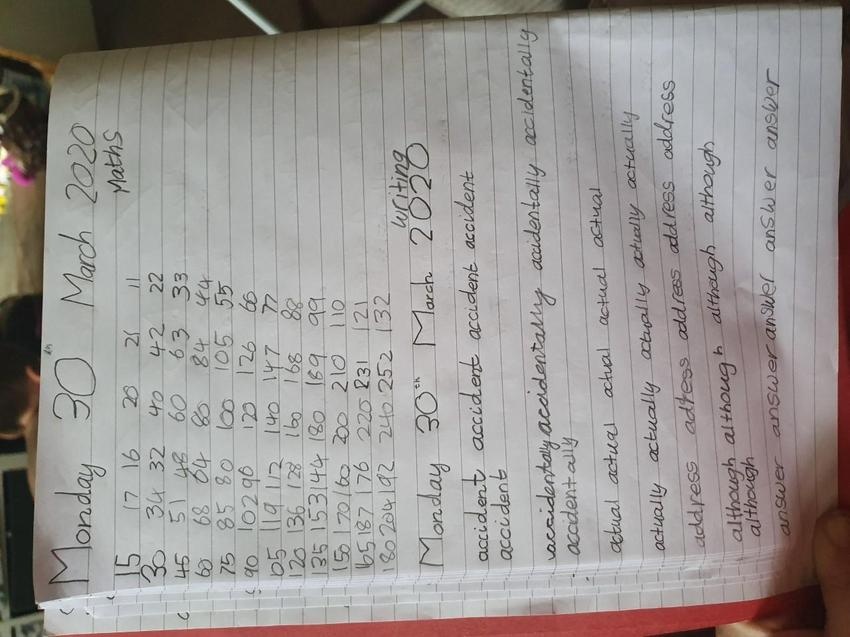 Monday 30th March 2020
Maths
15 17 16 20 21 11
30 34 32 40 42 22
45 51 48 60 63 33
60 68 64 80 84 44
75 85 80 100 105 55
90 102 96 120 126 66
105 119 112 140 147 77
120 136 128 160 168 88
135 153 144 180 189 99
150 170 160 200 210 110
165 187 176 220 231 121
180 204 192 240 252 132
Writing
Monday 30th March 2020
accident accident accident accident
accident
accidentally accidentally accidentally accidentally
accidentally
actual actual actual actual actual
actually actually actually actually actually
address address address address address
although although although although
although
answer answer answer answer answer